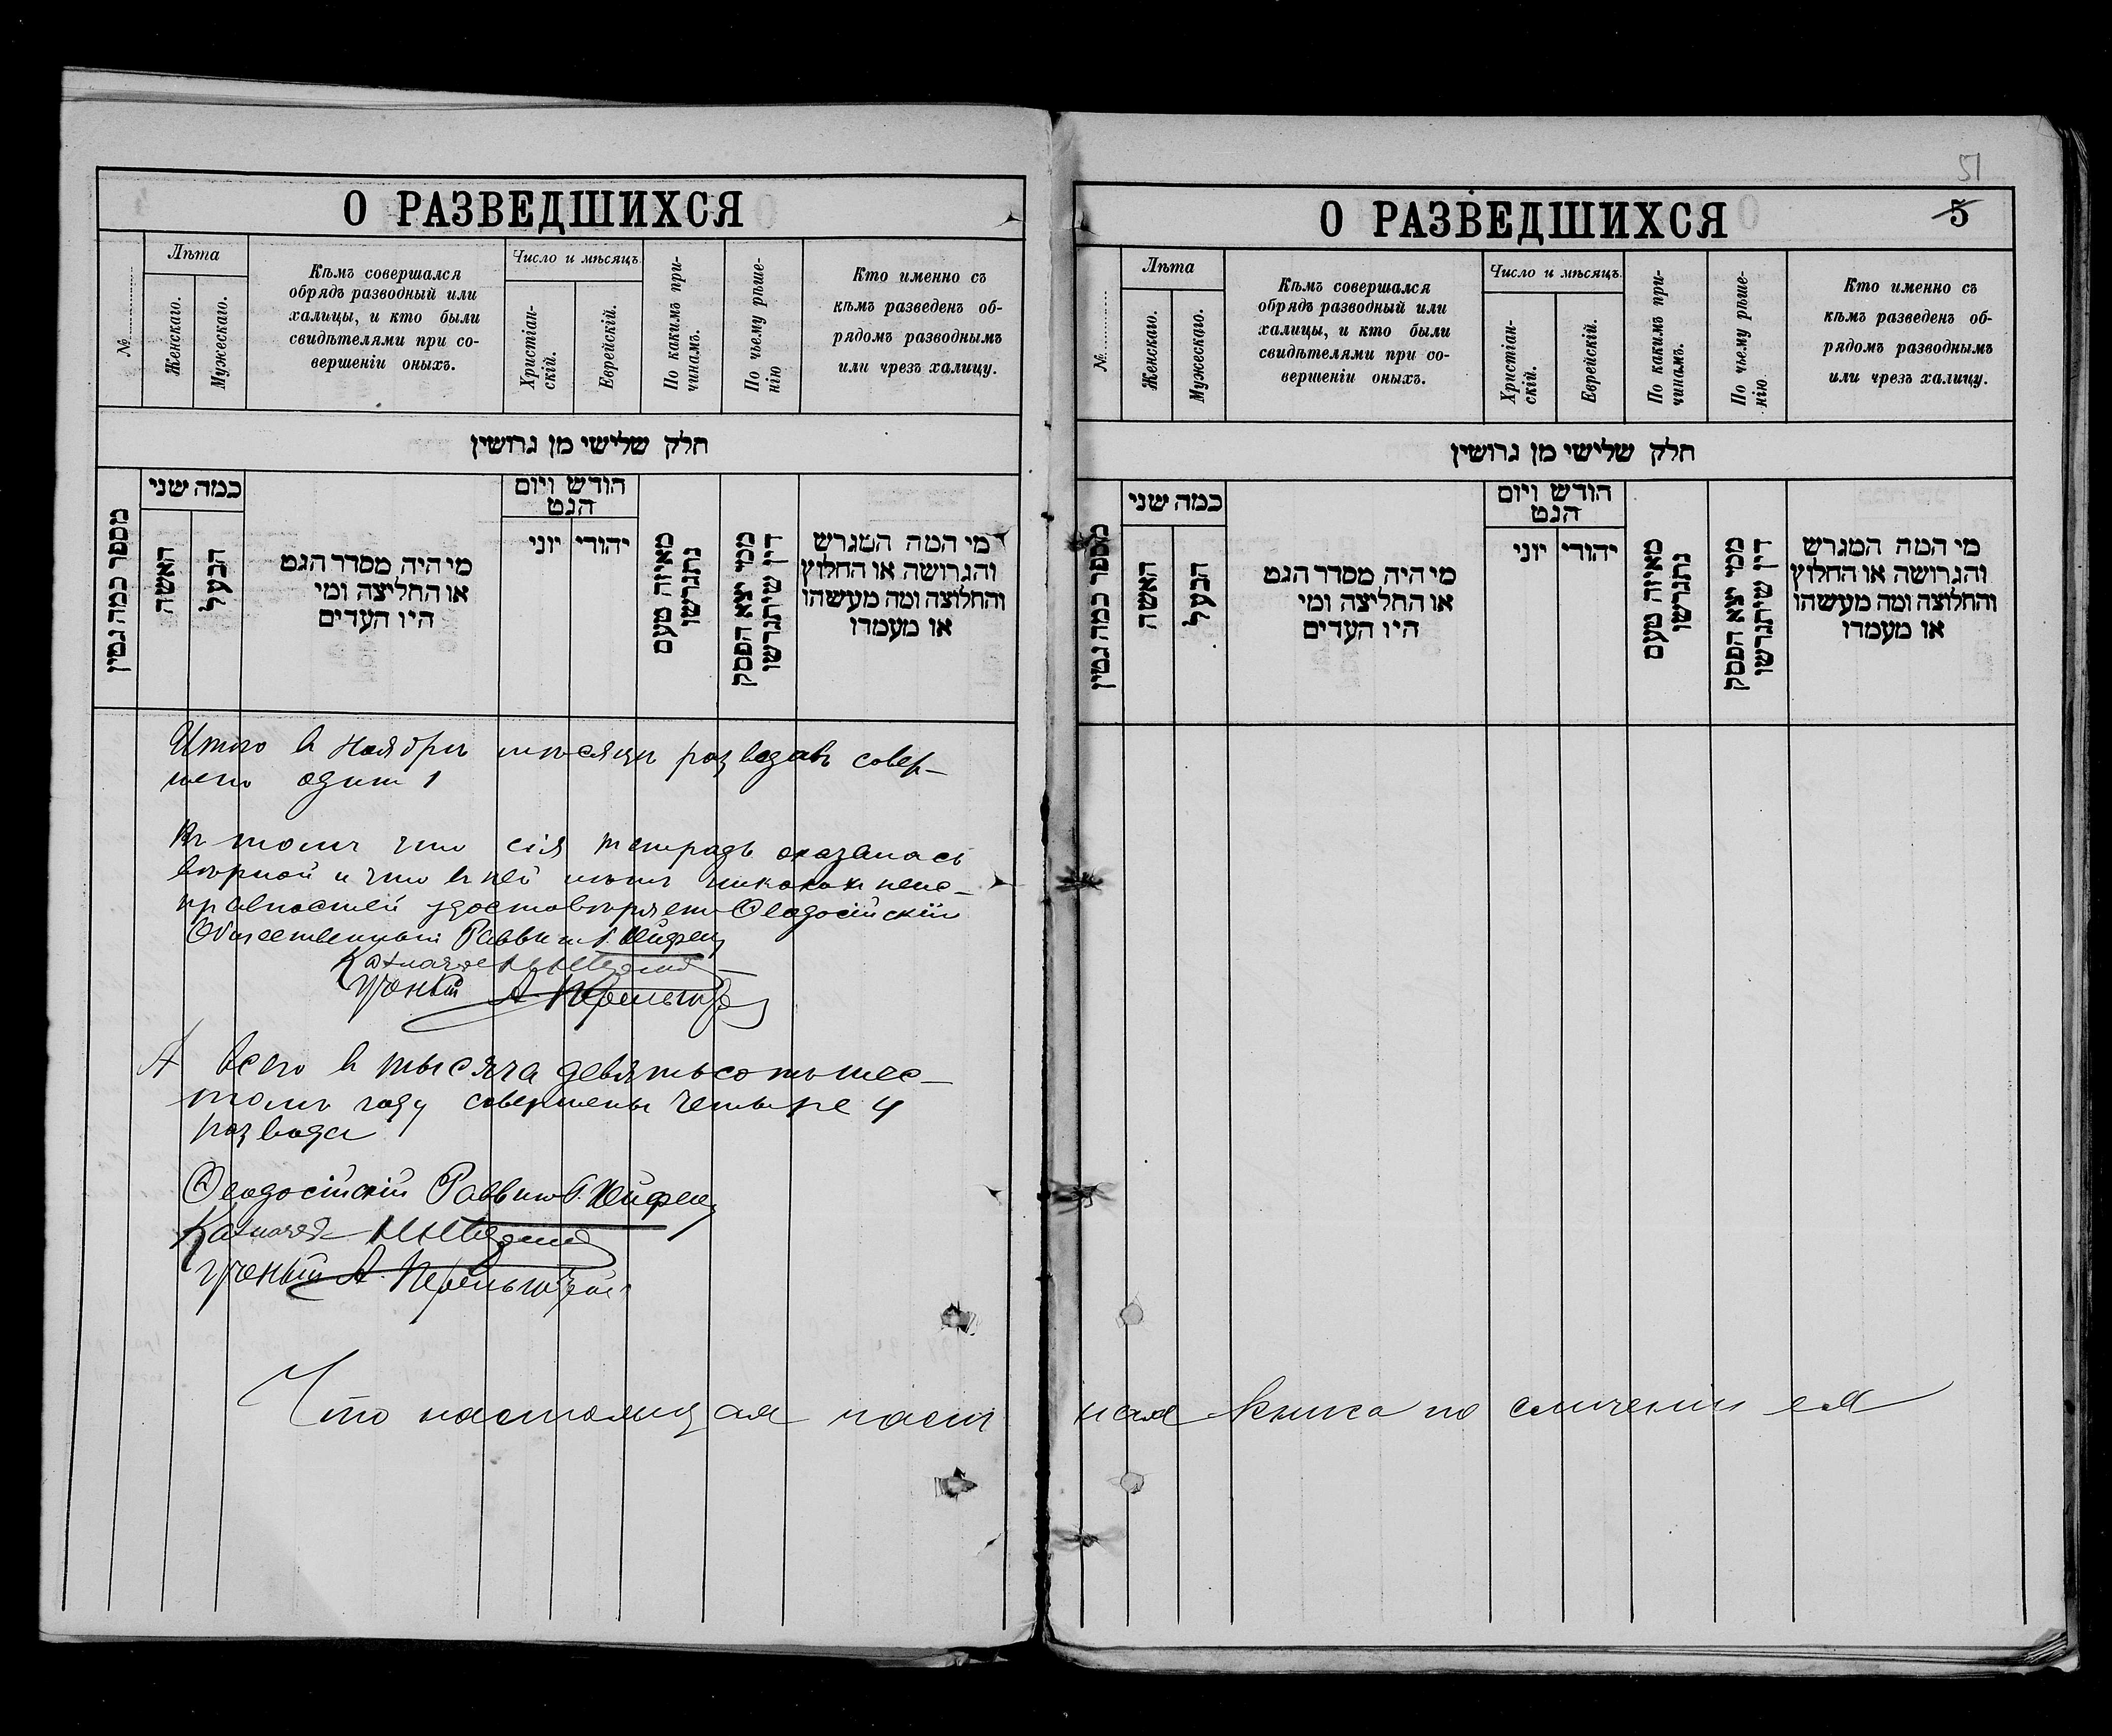 О РАЗВЕДШИХСЯ
№
Лѣта
Женскаго.
Мужескаго.
Кѣмъ совершался
обрядъ разводный или
халицы, и кто были
свидѣтелями при со-
вершеніи оныхъ.
Число и мѣсяцъ.
Христіан-
скій.
Еврейскій.
По какимъ при-
чинамъ.
По чьему рѣше-
нію
Кто именно съ
кѣмъ разведенъ об-
рядомъ разводнымъ
или чрезъ халицу.
חלק שלישי מן גרושין
מספר כמה גטין
כמה שני
האשה
הבעל
מי היה מסדר הגט
או החליצה ומי
היו העדים
הודש ויום
הגט
יוני
יהודי
מאיזה טעם
נתגרשו
ממי יצא הפסק
דין שיתגרשו
מי המה המגרש
והגרושה או החלוץ
והחלוצה ומה מעשהו
או מעמדו
Итого в Ноябрѣ мѣсяцѣ разводовъ совер-
шено один 1
Въ томъ что сія тетрадь оказалась
вѣрной и что в ней нѣтъ никаких неис-
правностей удостовѣряетъ Ѳеодосійскій
Общественный Раввинъ
Казначей
Ученый
А всего в тысяча девятьсотъ шес-
томъ году совершены четыре 4
развода
Ѳеодосійскій Раввинъ
Казначей
Ученый А.
Что настоящая часть
51
О РАЗВЕДШИХСЯ
5
№
Лѣта
Женскаго.
Мужескаго.
Кѣмъ совершался
обрядъ разводный или
халицы, и кто были
свидѣтелями при со-
вершеніи оныхъ.
Число и мѣсяцъ.
Христіан-
скій.
Еврейскій.
По какимъ при-
чинамъ.
По чьему рѣше-
нію
Кто именно съ
кѣмъ разведенъ об-
рядомъ разводнымъ
или чрезъ халицу.
חלק שלישי מן גרושין
מספר כמה גטין
כמה שני
האשה
הבעל
מי היה מסדר הגט
או החליצה ומי
היו העדים
הודש ויום
הגט
יוני
יהודי
מאיזה טעם
נתגרשו
ממי יצא הפסק
דין שיתגרשו
מי המה המגרש
והגרושה או החלוץ
והחלוצה ומה מעשהו
או מעמדו
ная книга по сличеніи ея